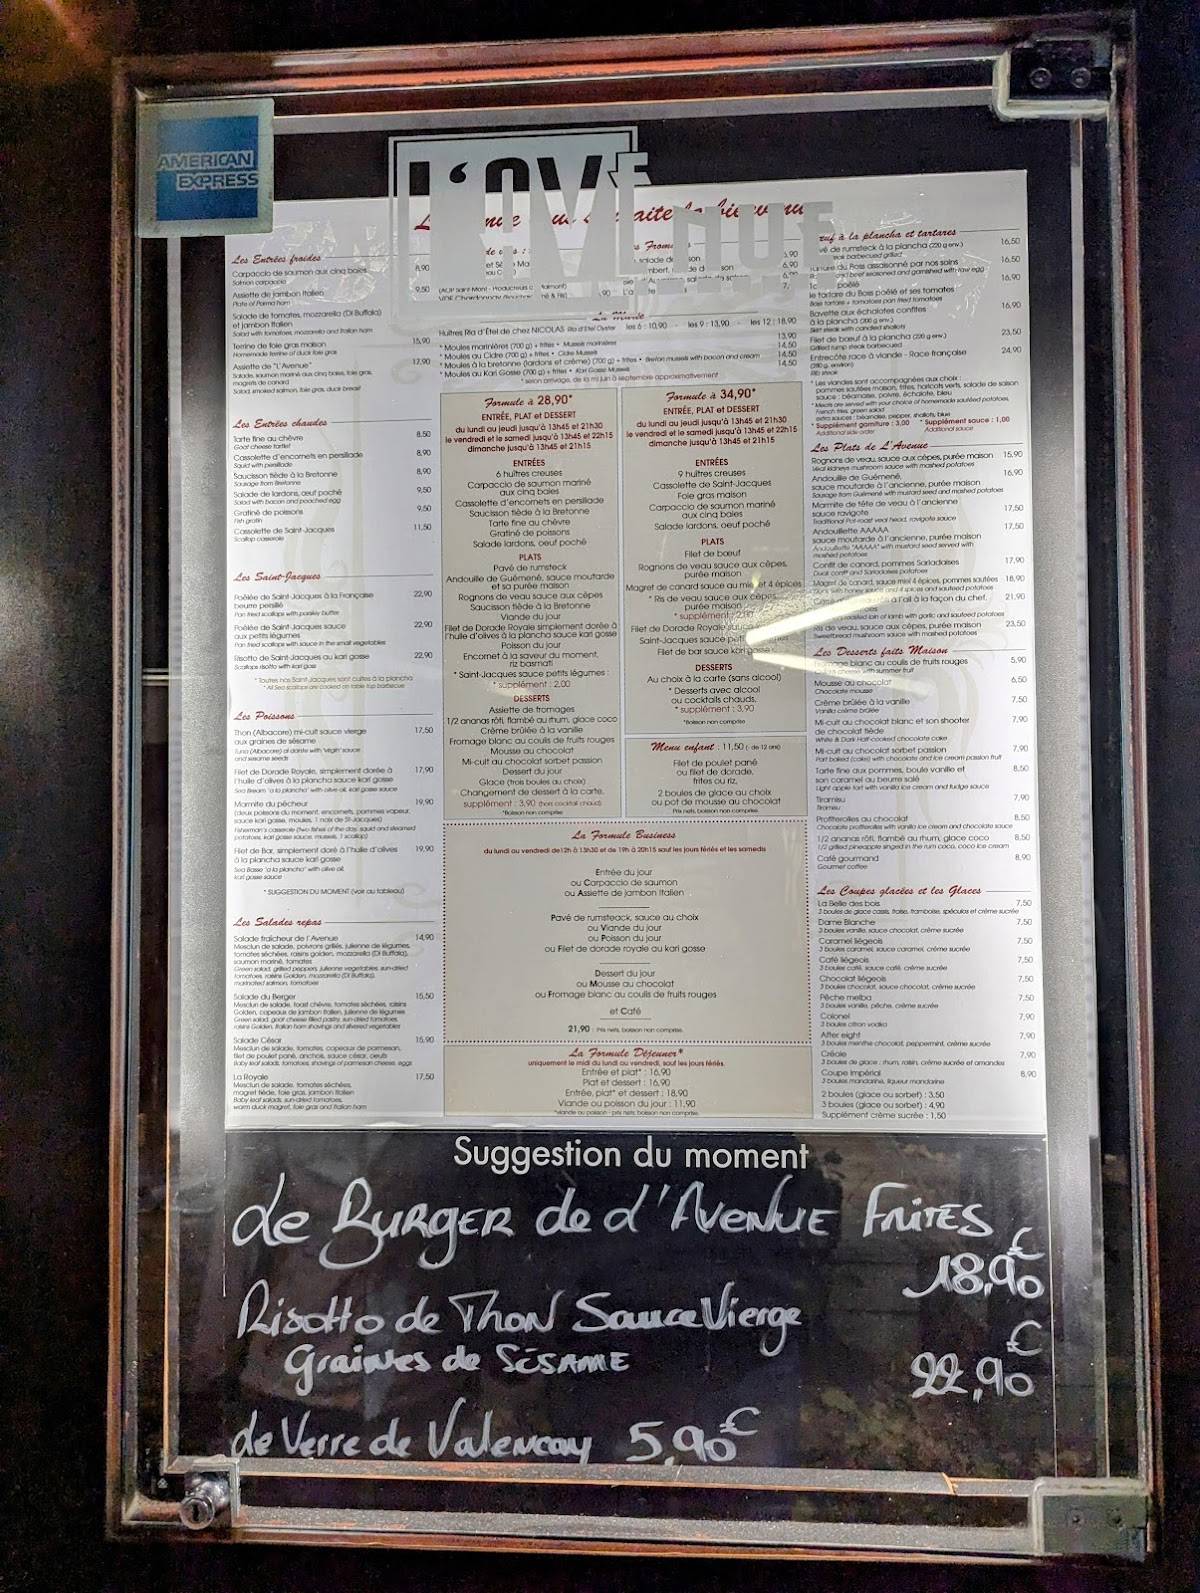 AMERICAN
EXPRESS
L'AVENUE
Les Entrées froides
Carpaccio de saumon aux cinq baies 8,90
Salmon carpaccio
Assiette de jambon Italien 9,50
Plate of Parma ham
Salade de tomates, mozzarella (Di Buffala)
et jambon Italien
Salad with tomatoes, mozzarella and Italian ham
Terrine de foie gras maison 15,90
Homemade terrine of duck foie gras
Assiette de "L'Avenue" 17,90
Salade, saumon mariné aux cinq baies, foie gras,
magrets de canard
Salad, smoked salmon, foie gras, duck breast
Les Entrées chaudes
Tarte fine au chèvre 8,50
Goat cheese tartlet
Cassolette d'encornets en persillade 8,90
Squid with persillade
Saucisson tiède à la Bretonne 8,90
Sausage from Bretagne
Salade de lardons, œuf poché 9,50
Salad with bacon and poached egg
Gratiné de poissons 9,50
Fish gratin
Cassolette de Saint-Jacques 11,50
Scallop casserole
Les Saint-Jacques
Poêlée de Saint-Jacques à la Française 22,90
beurre persillé
Pan fried scallops with parsley butter
Poêlée de Saint-Jacques sauce 22,90
aux petits légumes
Pan fried scallops with sauce in the small vegetables
Risotto de Saint-Jacques au kari gosse 22,90
Scallops risotto with kari goss
* Toutes nos Saint-Jacques sont cuites à la plancha
* All Sea scallops are cooked on table top barbecue
Les Poissons
Thon (Albacore) mi-cuit sauce vierge 17,50
aux graines de sésame
Tuna (Albacore) al dante with 'virgin' sauce
and sesame seeds
Filet de Dorade Royale, simplement dorée à 17,90
l'huile d'olives à la plancha sauce kari gosse
Sea Bream "a la plancha" with olive oil, kari gosse sauce
Marmite du pêcheur 19,90
(deux poissons du moment, encornets, pommes vapeur,
sauce kari gosse, moules, 1 noix de St-Jacques)
Fisherman's casserole (two fishes of the day, squid and steamed
potatoes, kari gosse sauce, mussels, 1 scallop)
Filet de Bar, simplement doré à l'huile d'olives 19,90
à la plancha sauce kari gosse
Sea Basse "a la plancha" with olive oil,
kari gosse sauce
* SUGGESTION DU MOMENT (voir au tableau)
Les Salades repas
Salade fraîcheur de l'Avenue 14,90
Mesclun de salade, poivrons grillés, julienne de légumes,
tomates séchées, raisins golden, mozzarella (Di Buffala),
saumon mariné, tomates
Green salad, grilled peppers, julienne vegetables, sun-dried
tomatoes, raisins Golden, mozzarella (Di Buffala),
marinated salmon, tomatoes
Salade du Berger 15,50
Mesclun de salade, toast chèvre, tomates séchées, raisins
Golden, copeaux de jambon Italien, julienne de légumes
Green salad, goat cheese filled pastry, sun-dried tomatoes,
raisins Golden, Italian ham shavings and slivered vegetables
Salade César 15,90
Mesclun de salade, tomates, copeaux de parmesan,
filet de poulet pané, anchois, sauce césar, oeufs
Baby leaf salads, tomatoes, shavings of parmesan cheese, eggs
La Royale 17,50
Mesclun de salade, tomates séchées,
magret tiède, foie gras, jambon Italien
Baby leaf salads, sun-dried tomatoes,
warm duck magret, foie gras and Italian ham
La Marée
Huîtres Ria d'Étel de chez NICOLAS Ria d'Étel Oyster les 6 : 10,90 - les 9 : 13,90 - les 12 : 18,90
* Moules marinières (700 g) + frites • Mussels marinières 13,90
* Moules au Cidre (700 g) + frites • Cidre Mussels 14,50
* Moules à la bretonne (lardons et crème) (700 g) + frites • Breton mussels with bacon and cream 14,50
* Moules au Kari Gosse (700 g) + frites • Kari Gosse Mussels 14,50
* selon arrivage, de la mi juin à septembre approximativement
Formule à 28,90*
ENTRÉE, PLAT et DESSERT
du lundi au jeudi jusqu'à 13h45 et 21h30
le vendredi et le samedi jusqu'à 13h45 et 22h15
dimanche jusqu'à 13h45 et 21h15
ENTRÉES
6 huîtres creuses
Carpaccio de saumon mariné
aux cinq baies
Cassolette d'encornets en persillade
Saucisson tiède à la Bretonne
Tarte fine au chèvre
Gratiné de poissons
Salade lardons, oeuf poché
PLATS
Pavé de rumsteck
Andouille de Guémené, sauce moutarde
et sa purée maison
Rognons de veau sauce aux cèpes
Saucisson tiède à la Bretonne
Viande du jour
Filet de Dorade Royale simplement dorée à
l'huile d'olives à la plancha sauce kari gosse
Poisson du jour
Encornet à la saveur du moment,
riz basmati
* Saint-Jacques sauce petits légumes :
* supplément : 2,00
DESSERTS
Assiette de fromages
1/2 ananas rôti, flambé au rhum, glace coco
Crème brûlée à la vanille
Fromage blanc au coulis de fruits rouges
Mousse au chocolat
Mi-cuit au chocolat sorbet passion
Dessert du jour
Glace (trois boules au choix)
Changement de dessert à la carte,
supplément : 3,90 (hors cocktail chaud)
*Boisson non comprise
Formule à 34,90*
ENTRÉE, PLAT et DESSERT
du lundi au jeudi jusqu'à 13h45 et 21h30
le vendredi et le samedi jusqu'à 13h45 et 22h15
dimanche jusqu'à 13h45 et 21h15
ENTRÉES
9 huîtres creuses
Cassolette de Saint-Jacques
Foie gras maison
Carpaccio de saumon mariné
aux cinq baies
Salade lardons, oeuf poché
PLATS
Filet de bœuf
Rognons de veau sauce aux cèpes,
purée maison
Magret de canard sauce au miel et 4 épices
* Ris de veau sauce aux cèpes
purée maison
* supplément : 2,00
Filet de Dorade Royale sauce
Saint-Jacques sauce petits
Filet de bar sauce kari gosse
DESSERTS
Au choix à la carte (sans alcool)
* Desserts avec alcool
ou cocktails chauds,
* supplément : 3,90
*Boisson non comprise
Menu enfant : 11,50 (- de 12 ans)
Filet de poulet pané
ou filet de dorade,
frites ou riz,
2 boules de glace au choix
ou pot de mousse au chocolat
Prix nets, boisson non comprise
La Formule Business
du lundi au vendredi de12h à 13h30 et de 19h à 20h15 sauf les jours fériés et les samedis
Entrée du jour
ou Carpaccio de saumon
ou Assiette de jambon Italien
Pavé de rumsteack, sauce au choix
ou Viande du jour
ou Poisson du jour
ou Filet de dorade royale au kari gosse
Dessert du jour
ou Mousse au chocolat
ou Fromage blanc au coulis de fruits rouges
et Café
21,90 : Prix nets, boisson non comprise.
La Formule Déjeuner*
uniquement le midi du lundi au vendredi, sauf les jours fériés.
Entrée et plat* : 16,90
Plat et dessert : 16,90
Entrée, plat* et dessert : 18,90
Viande ou poisson du jour : 11,90
*viande ou poisson - prix nets, boisson non comprise.
Bœuf à la plancha et tartares
Pavé de rumsteck à la plancha (220 g env.) 16,50
16,50
le tartare du Boss poêlé et ses tomates 16,90
Boss tartare + tomatoes pan fried tomatoes
Bavette aux échalotes confites 16,90
à la plancha (200 g env.)
Skirt steak with candied shallots
Filet de bœuf à la plancha (220 g env.) 23,50
Grilled rump steak barbecued
Entrecôte race à viande - Race française 24,90
(280 g. environ)
Rib steak
* Les viandes sont accompagnées aux choix :
pommes sautées maison, frites, haricots verts, salade de saison
sauce : béarnaise, poivre, échalote, bleu
* Meats are served with your choice of homemade sautéed potatoes,
French fries, green salad
extra sauces : béarnaise, pepper, shallots, blue
* Supplément garniture : 3,00 * Supplément sauce : 1,00
Additional side order Additional sauce
Les Plats de L'Avenue
Rognons de veau, sauce aux cèpes, purée maison 15,90
Veal kidneys mushroom sauce with mashed potatoes
Andouille de Guémené, 16,90
sauce moutarde à l'ancienne, purée maison
Sausage from Guémené with mustard seed and mashed potatoes
Marmite de tête de veau à l'ancienne 17,50
sauce ravigote
Traditional Pot-roast veal head, ravigote sauce
Andouillette AAAAA 17,50
sauce moutarde à l'ancienne, purée maison
Andouillette "AAAAA" with mustard seed served with
mashed potatoes
Confit de canard, pommes Sarladaises 17,90
Duck confit and Sarladaises potatoes
Magret de canard, sauce miel 4 épices, pommes sautées 18,90
Duck with honey sauce and 4 spices and sauteed potatoes
à l'ail à la façon du chef, 21,90
roasted loin of lamb with garlic and sauteed potatoes
Ris de veau, sauce aux cèpes, purée maison 23,50
Sweetbread mushroom sauce with mashed potatoes
Les Desserts faits Maison
Fromage blanc au coulis de fruits rouges 5,90
cheese with summer fruit
Mousse au chocolat 6,50
Chocolate mousse
Crème brûlée à la vanille 7,50
Vanilla crème brûlée
Mi-cuit au chocolat blanc et son shooter 7,90
de chocolat tiède
White & Dark Half-cooked chocolate cake
Mi-cuit au chocolat sorbet passion 7,90
Part baked (cake) with chocolate and ice cream passion fruit
Tarte fine aux pommes, boule vanille et 8,50
son caramel au beurre salé
Light apple tart with vanilla ice cream and fudge sauce
Tiramisu 7,90
Tiramisu
Profiteroles au chocolat 8,50
Chocolate profiteroles with vanilla ice cream and chocolate sauce
1/2 ananas rôti, flambé au rhum, glace coco 8,50
1/2 grilled pineapple singed in the rum coco, coco ice cream
Café gourmand 8,90
Gourmet coffee
Les Coupes glacées et les Glaces
La Belle des bois 7,50
3 boules de glace cassis, fraise, framboise, spéculos et crème sucrée
Dame Blanche 7,50
3 boules vanille, sauce chocolat, crème sucrée
Caramel liégeois 7,50
3 boules caramel, sauce caramel, crème sucrée
Café liégeois 7,50
3 boules café, sauce café, crème sucrée
Chocolat liégeois 7,50
3 boules chocolat, sauce chocolat, crème sucrée
Pêche melba 7,50
3 boules vanille, pêche, crème sucrée
Colonel 7,90
3 boules citron vodka
After eight 7,90
3 boules menthe chocolat, peppermint, crème sucrée
Créole 7,90
3 boules de glace : rhum, raisin, crème sucrée et amandes
Coupe Impérial 8,90
3 boules mandarine, liqueur mandarine
2 boules (glace ou sorbet) : 3,50
3 boules (glace ou sorbet) : 4,90
Supplément crème sucrée : 1,50
Suggestion du moment
Le BURGER de d'AVENUE FRITES
18,90€
Risotto de THON Sauce Vierge
Graines de SÉSAME 22,90€
de Verre de Valencay 5,90€